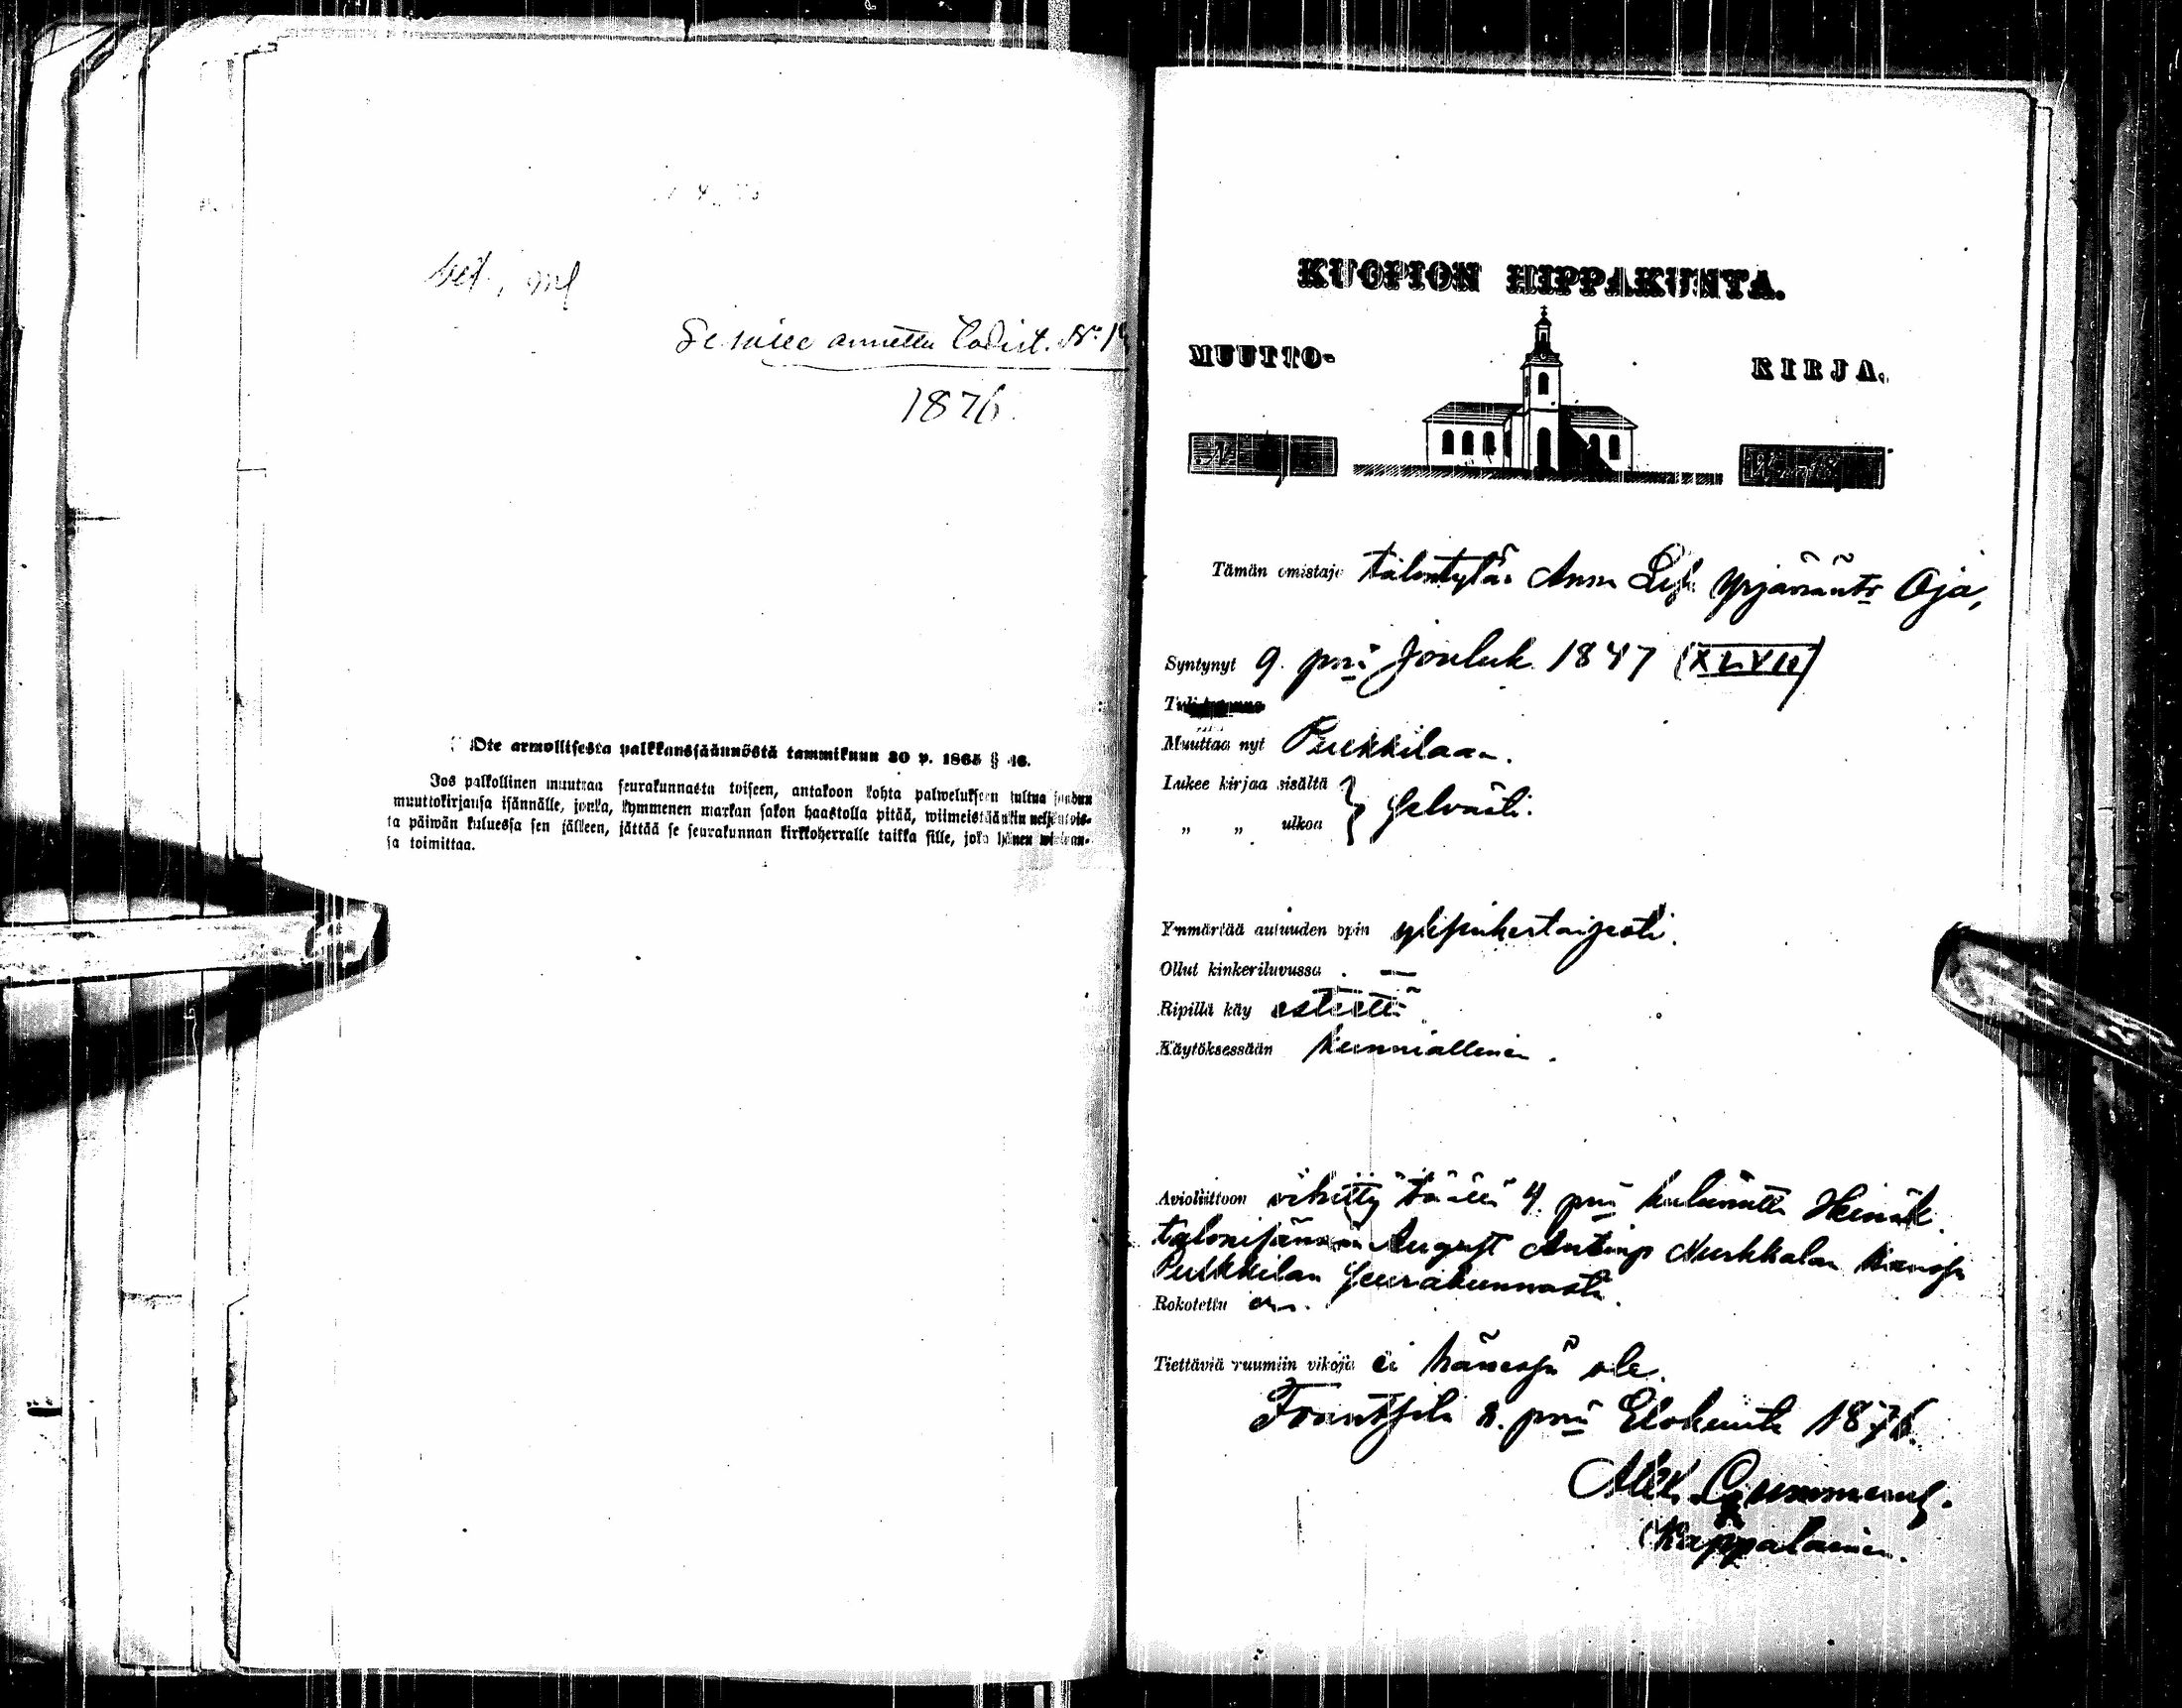 1876
Ote armollisesta palkkanssäännöstä tammikuun 30 p. 1865 § 46.
Jos palkollinen muuttaa seurakunnasta toiseen, antakoon kohta palwelukseen tultua saadun
muuttokirjansa isännälle, jonka, kymmenen markan sakon haastolla pitää, wiimeistäänkin neljäntois-
ta päiwän kuluessa sen jälkeen, jättää se seurakunnan kirkkoherralle taikka sille, joka hänen wirkaan-
sa toimittaa.
KUOPION HIPPAKUNTA.
MUUTTO- KIRJA.
Tämän omistaja talontytär Anna Yrjäväntr Oja,
Syntynyt 9. pnä Jouluk. 1847 (XLVII)
Muuttaa nyt Pulkkilaan.
Lukee kirjaa sisältä
„ „ ulkoa } Selvästi.
Ymmärtää autuuden opin yksinkertaisesti.
Ollut kinkeriluvussa —
Ripillä käy esteettä
Käytöksessään kunniallinen.
Avioliittoon vihitty täällä 4 pnä kuluvatta Heinäk.
talonisännän August Antinp Kurkkalan kanssa
Pulkkilan Seurakunnasta.
Rokotettu on.
Tiettäviä ruumiin vikoja ei hänessä ole.
Frantsila 8. pnä Elokuuta 1876.
Kappalainen.